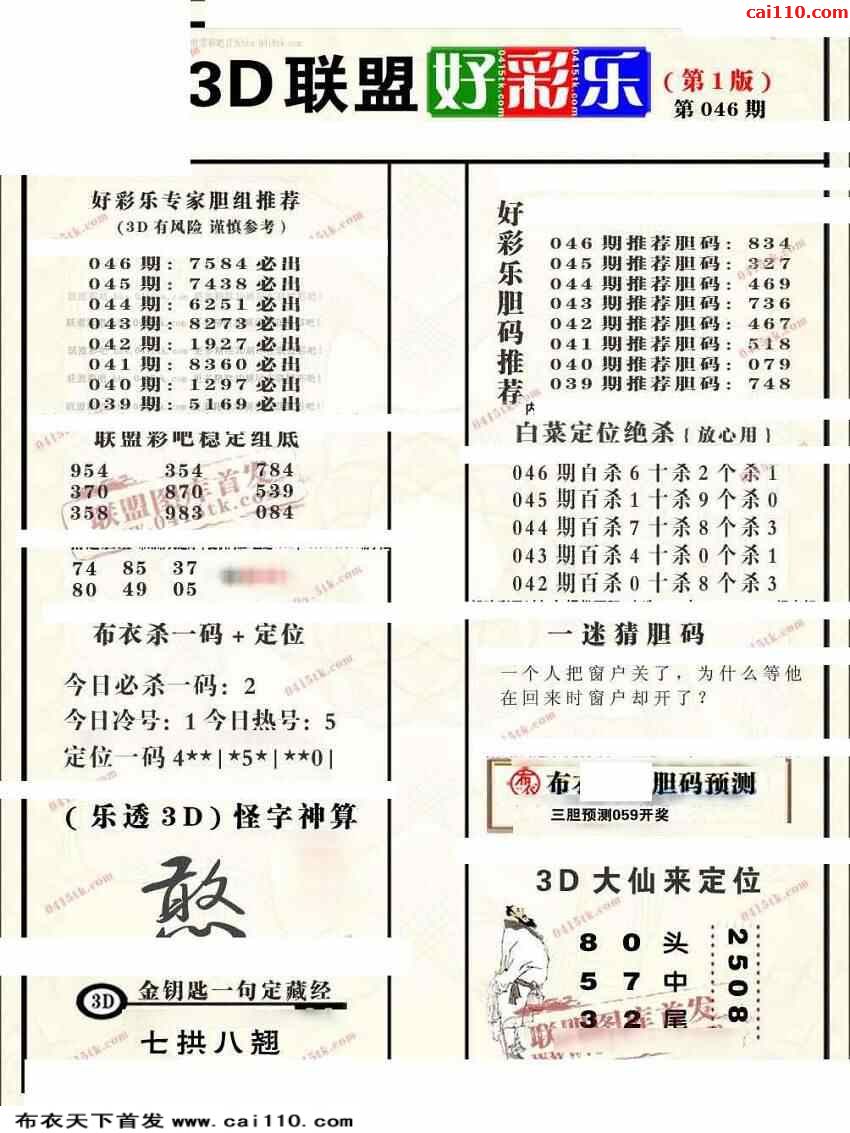 cai110.com
3D联盟好彩乐
(第1版)
第046期
好彩乐专家胆组推荐
(3D有风险 谨慎参考)
046期: 7584必出
045期: 7438必出
044期: 6251必出
043期: 8273必出
042期: 1927必出
041期: 8360必出
040期: 1297必出
039期: 5169必出
联盟彩吧稳定组底
954 354 784
370 870 539
358 983 084
74 85 37
80 49 05
布衣杀一码+定位
今日必杀一码: 2
今日冷号: 1 今日热号: 5
定位一码 4**|*5*|**0|
(乐透3D)怪字神算
憨
3D 金钥匙一句定藏经
七拱八翘
好彩乐胆码推荐
046期推荐胆码: 834
045期推荐胆码: 327
044期推荐胆码: 469
043期推荐胆码: 736
042期推荐胆码: 467
041期推荐胆码: 518
040期推荐胆码: 079
039期推荐胆码: 748
白菜定位绝杀{放心用}
046期百杀6十杀2个杀1
045期百杀1十杀9个杀0
044期百杀7十杀8个杀3
043期百杀4十杀0个杀1
042期百杀0十杀8个杀3
一迷猜胆码
一个人把窗户关了，为什么等他
在回来时窗户却开了？
布衣 布衣 胆码预测
三胆预测059开奖
3D大仙来定位
8 0 头
5 7 中
3 2 尾
2508
联盟图库首发
www.0415tk.com
联盟图库首发
0415tk.com
布衣天下首发 www.cai110.com